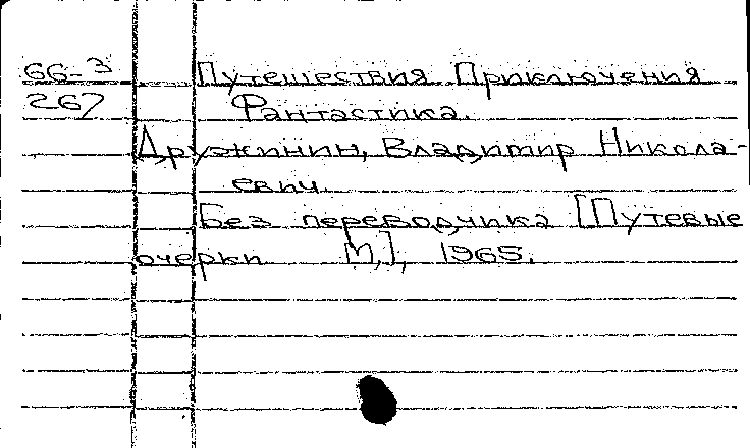 66-3 Путешествия Приключения
267 Фантастика.
Дружинин, Владимир Никола-
евич.
Без переводчика [Путевые
очерки М,], 1965.